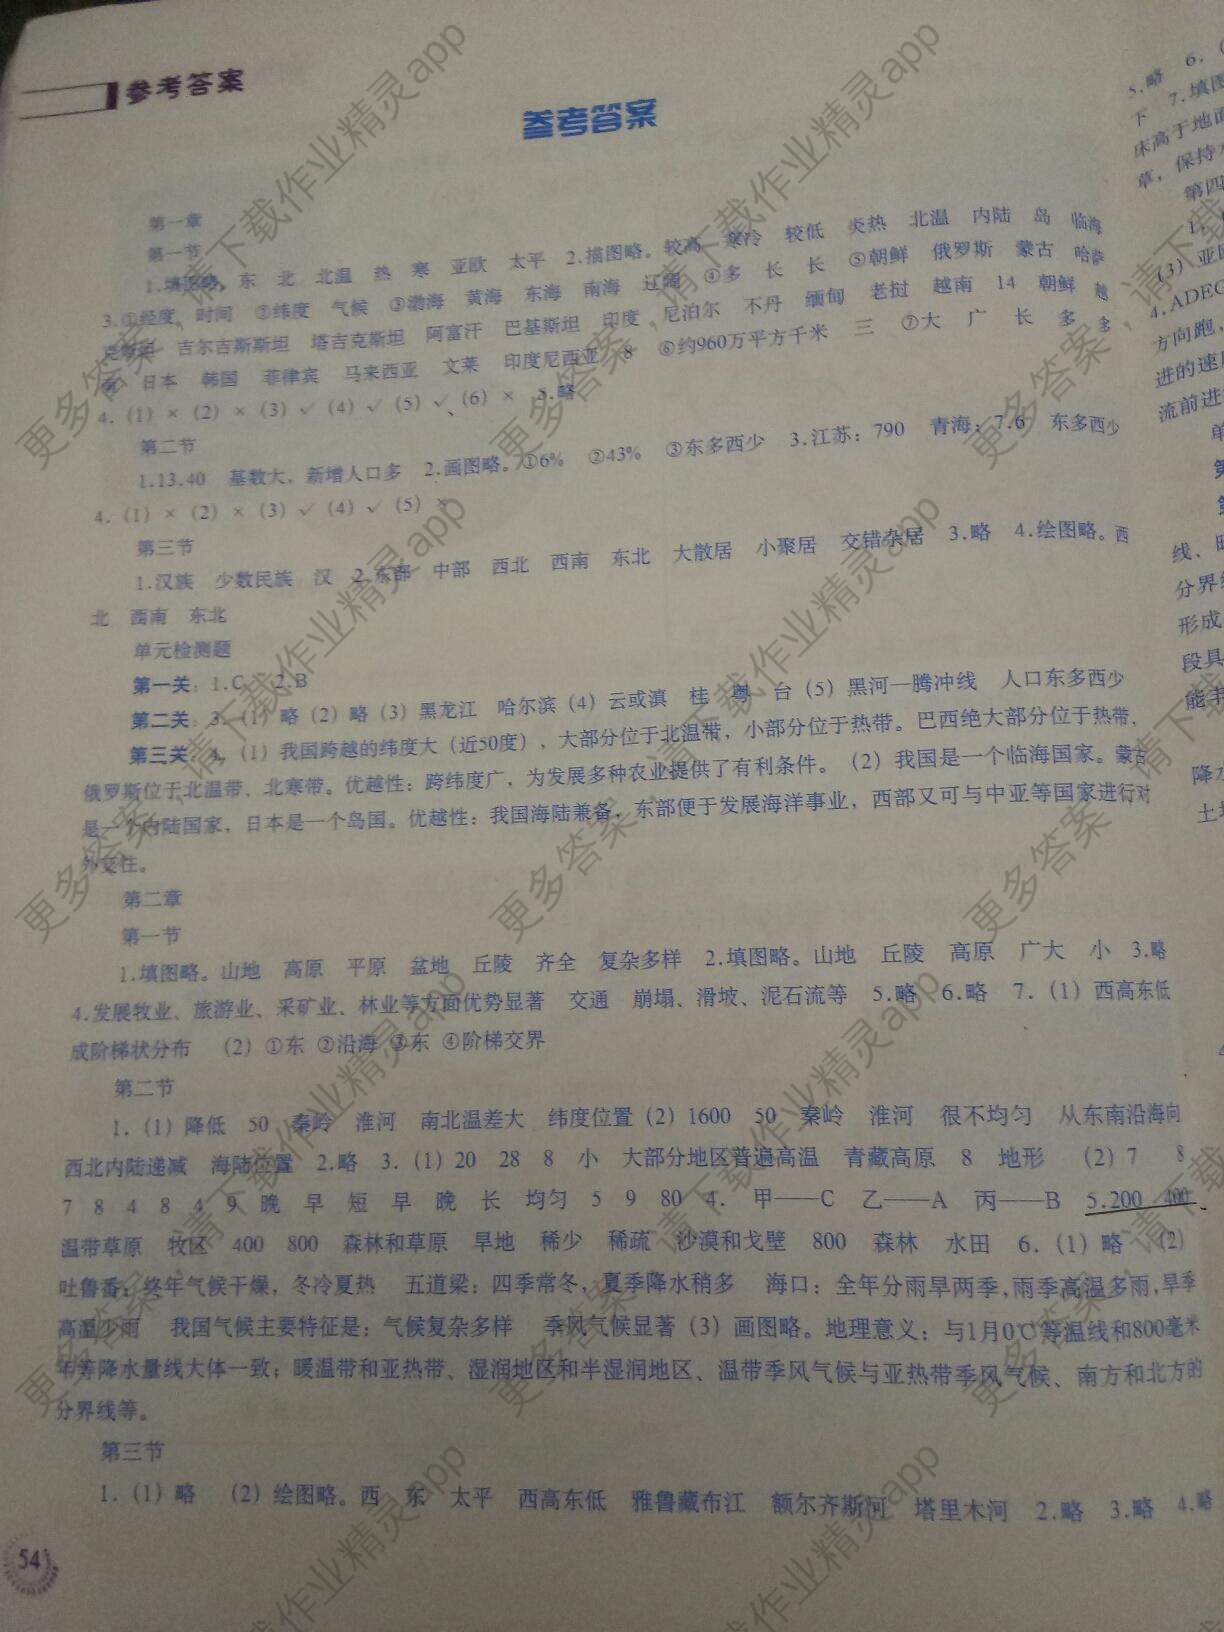 参考答案
参考答案
第一章
第一节
1.填图略。东 北 北温 热 寒 亚欧 太平 2.描图略。较高 寒冷 较低 炎热 北温 内陆 岛 临海
3.①经度 时间 ②纬度 气候 ③渤海 黄海 东海 南海 辽阔 ④多 长 长 ⑤朝鲜 俄罗斯 蒙古 哈萨
克斯坦 吉尔吉斯斯坦 塔吉克斯坦 阿富汗 巴基斯坦 印度 尼泊尔 不丹 缅甸 老挝 越南 14 朝鲜 越
南 日本 韩国 菲律宾 马来西亚 文莱 印度尼西亚 8 ⑥约960万平方千米 三 ⑦大 广 长 多 多
4.(1)×(2)×(3)✓(4)✓(5)✓(6)× 5.略
第二节
1.13.40 基数大，新增人口多 2.画图略。①6% ②43% ③东多西少 3.江苏：790 青海：7.6 东多西少
4.(1)×(2)×(3)✓(4)✓(5)×
第三节
1.汉族 少数民族 汉 2.东部 中部 西北 西南 东北 大散居 小聚居 交错杂居 3.略 4.绘图略。西
北 西南 东北
单元检测题
第一关：1.C 2.B
第二关：3.(1)略(2)略(3)黑龙江 哈尔滨(4)云或滇 桂 粤 台(5)黑河—腾冲线 人口东多西少
第三关：4.(1)我国跨越的纬度大（近50度），大部分位于北温带，小部分位于热带。巴西绝大部分位于热带，
俄罗斯位于北温带、北寒带。优越性：跨纬度广，为发展多种农业提供了有利条件。(2)我国是一个临海国家。蒙古
是一个内陆国家，日本是一个岛国。优越性：我国海陆兼备，东部便于发展海洋事业，西部又可与中亚等国家进行对
外交往。
第二章
第一节
1.填图略。山地 高原 平原 盆地 丘陵 齐全 复杂多样 2.填图略。山地 丘陵 高原 广大 小 3.略
4.发展牧业、旅游业、采矿业、林业等方面优势显著 交通 崩塌、滑坡、泥石流等 5.略 6.略 7.(1)西高东低
成阶梯状分布 (2)①东 ②沿海 ③东 ④阶梯交界
第二节
1.(1)降低 50 秦岭 淮河 南北温差大 纬度位置(2)1600 50 秦岭 淮河 很不均匀 从东南沿海向
西北内陆递减 海陆位置 2.略 3.(1)20 28 8 小 大部分地区普遍高温 青藏高原 8 地形 (2)7 8
7 8 4 8 4 9 晚 早 短 早 晚 长 均匀 5 9 80 4. 甲——C 乙——A 丙——B 5.200 400
温带草原 牧区 400 800 森林和草原 旱地 稀少 稀疏 沙漠和戈壁 800 森林 水田 6.(1)略 (2)
吐鲁番：终年气候干燥，冬冷夏热 五道梁：四季常冬，夏季降水稍多 海口：全年分雨旱两季，雨季高温多雨，旱季
高温少雨 我国气候主要特征是：气候复杂多样 季风气候显著(3)画图略。地理意义：与1月0℃等温线和800毫米
年等降水量线大体一致；暖温带和亚热带、湿润地区和半湿润地区、温带季风气候与亚热带季风气候、南方和北方的
分界线等。
第三节
1.(1)略 (2)绘图略。西 东 太平 西高东低 雅鲁藏布江 额尔齐斯河 塔里木河 2.略 3.略 4.略
54
5.略 6.
下 7.填图
床高于地面
草，保持
第四
1.
(3)亚
4.ADEG
方向跑，
进的速
流前进
单
第
线、
分界
形成
段具
能丰
降水
土
更多答案，请下载作业精灵app